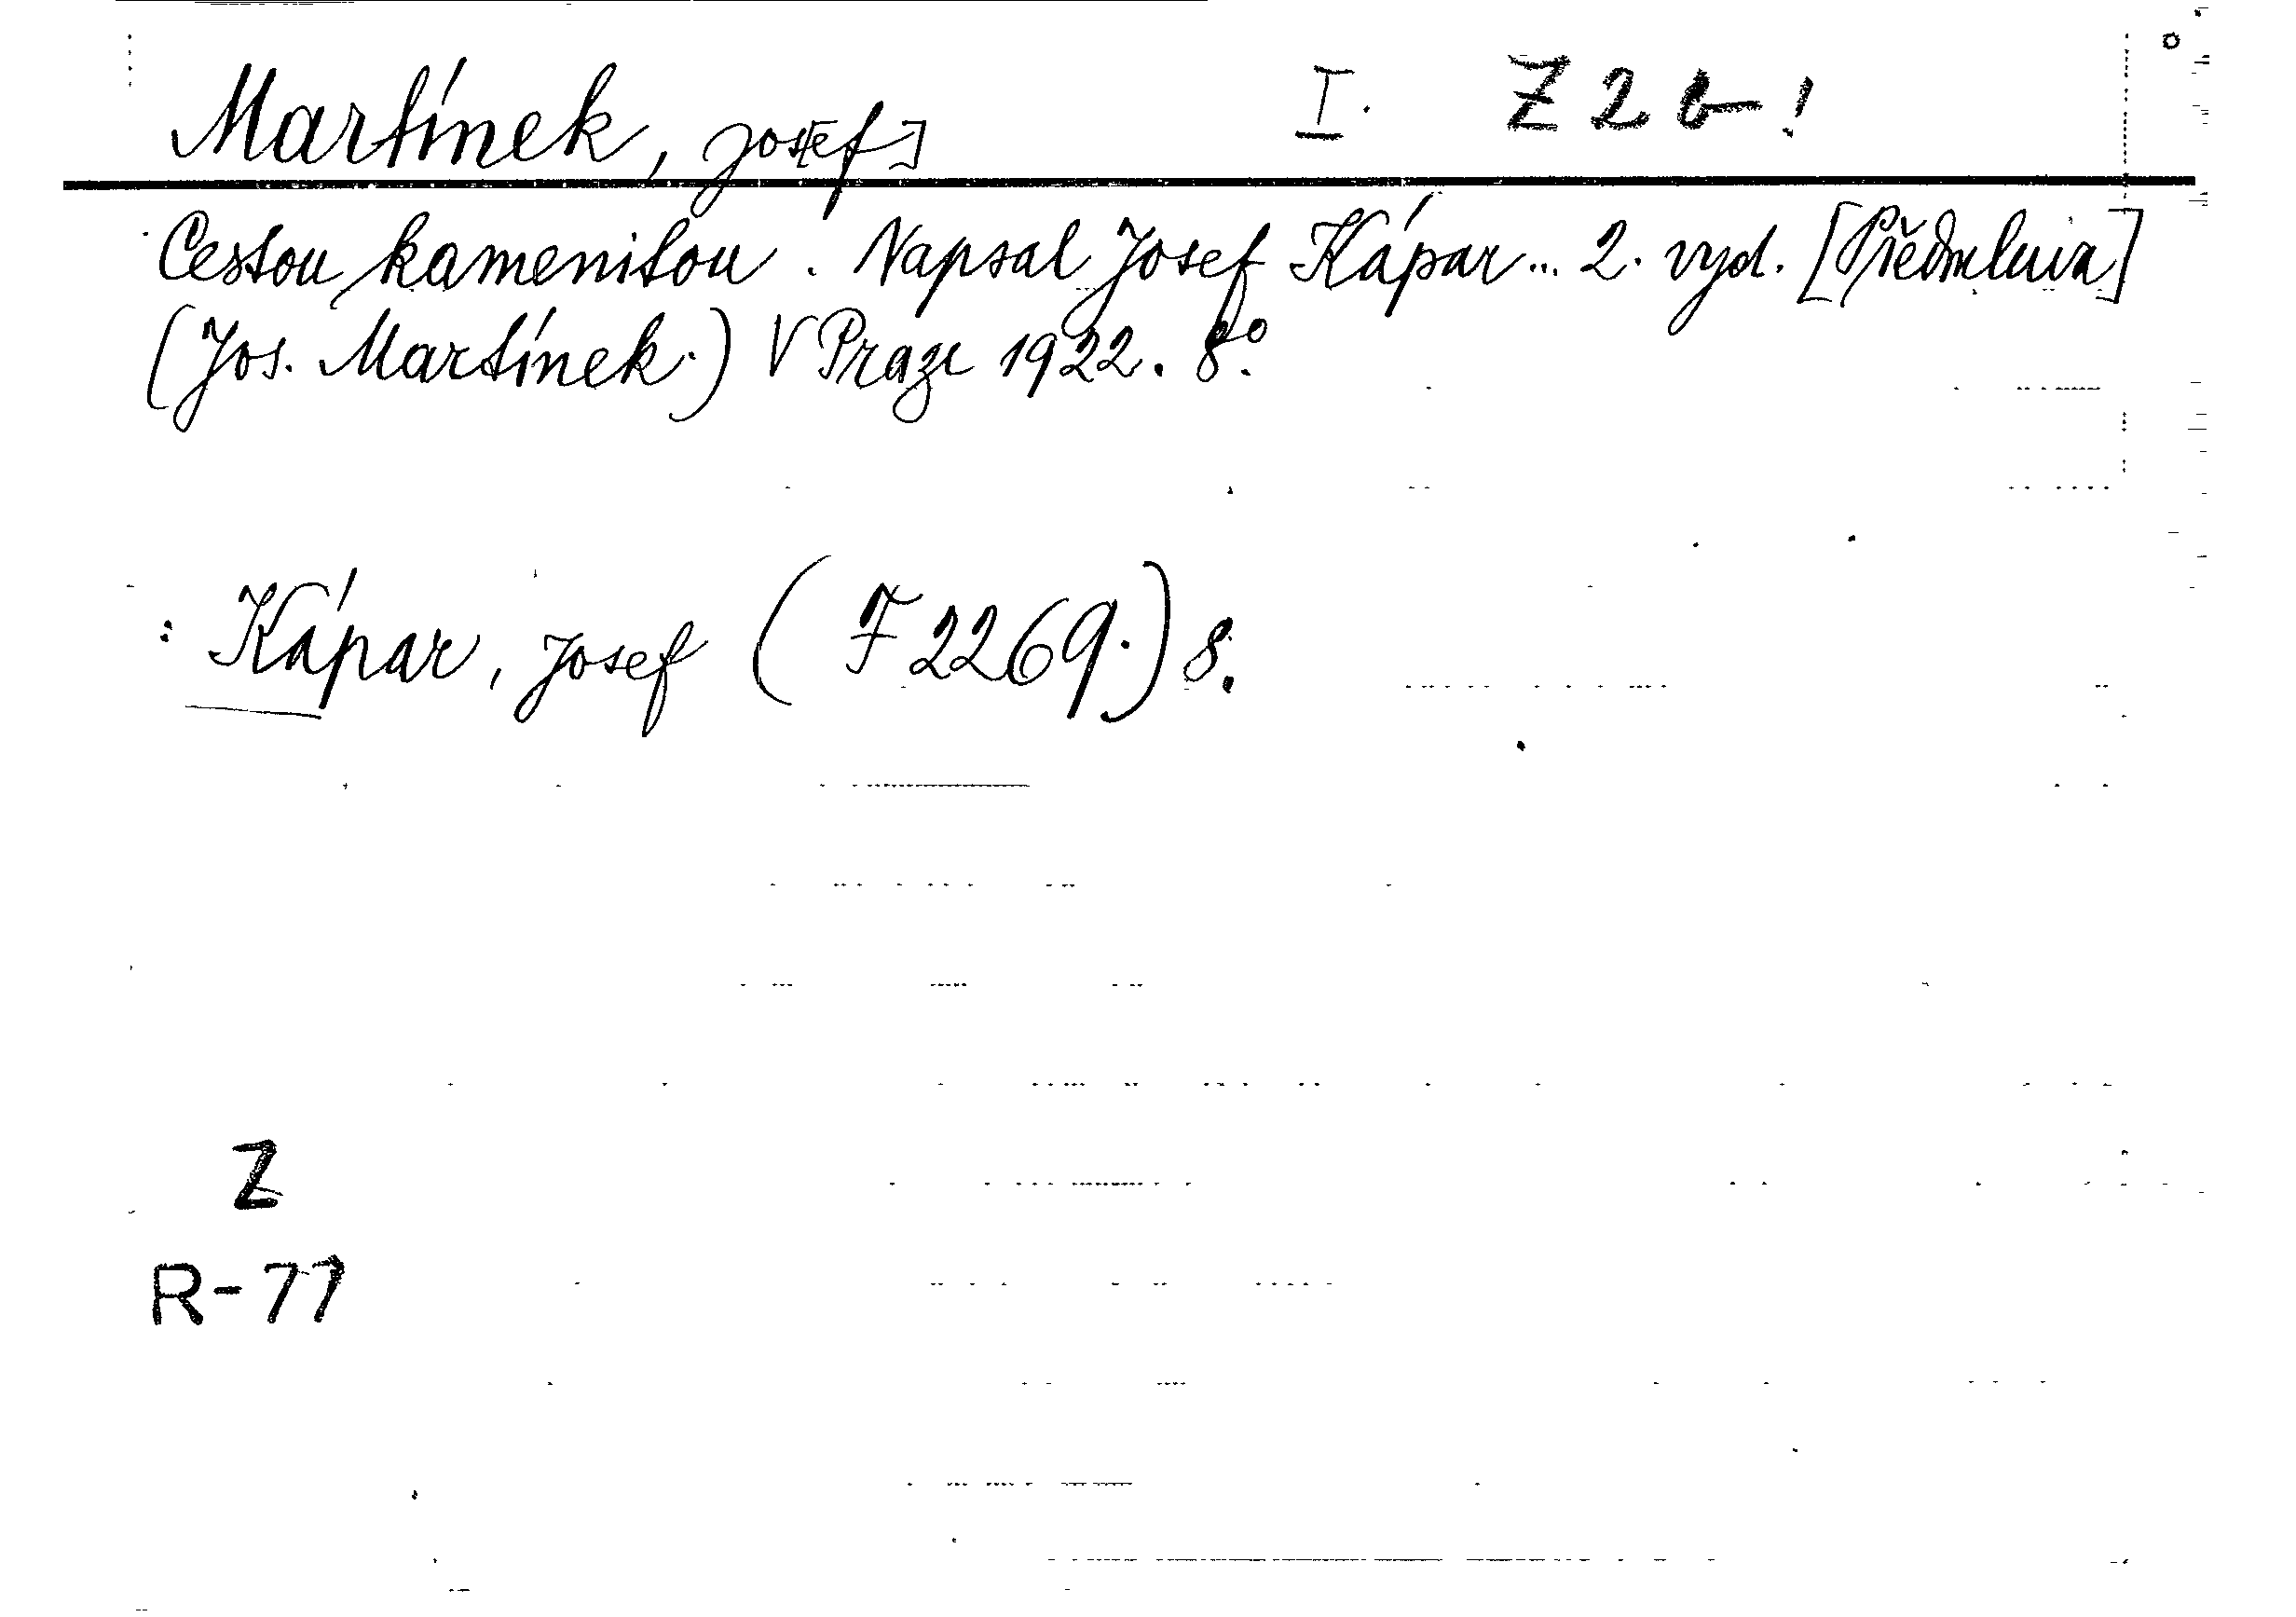 Martínek, Jos[ef] I. Z 2 b !
Cestou kamenitou. Napsal Josef Kápar... 2. vyd. [Předmluva]
(Jos. Martínek.) V Praze 1922. 8°.
: Kápar, Josef (F 2269.) 8.
Z
R-77